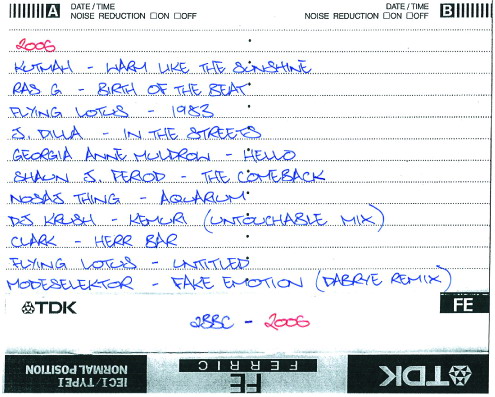 A DATE/TIME
NOISE REDUCTION □ON □OFF
DATE/TIME B
NOISE REDUCTION □ON □OFF
2006
KUTMAH - WARM LIKE THE SUNSHINE
RAS G - BIRTH OF THE BEAT
FLYING LOTUS - 1983
J. DILLA - IN THE STREETS
GEORGIA ANNE MULDROW - HELLO
SHAUN J. PEROD - THE COMEBACK
NOSAJ THING - AQUARIUM
DJ KRUSH - KEMURI (UNTOUCHABLE MIX)
CLARK - HERR BAR
FLYING LOTUS - UNTITLED
MODESELEKTOR - FAKE EMOTION (DABRYE REMIX)
TDK FE
2BBC - 2006
IEC I / TYPE I
NORMAL POSITION
FE
FERRIC
TDK